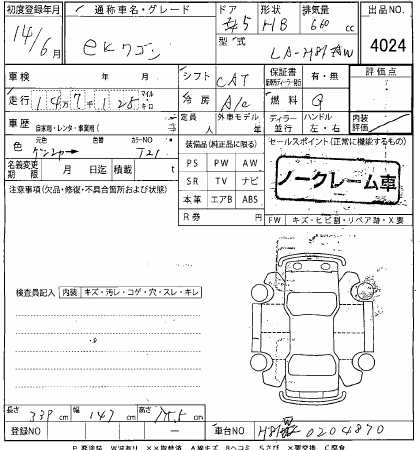 初度登録年月 通称車名・グレード ドア 形状 排気量 出品NO.
14/6月 eKワゴン #5 HB 660cc
型式 LA-H81W 4024
車検 年 月 シフト CAT 保証書 有・無 評価点
走行 14万7千128 マイル キロ 冷房 A/C 燃料 G
車歴 自家用・レンタ・事業用( 定員 人 外車モデル 年 ディーラー 並行 ハンドル 左・右 内装評価
色 元色 色番 カラーNO T21
装備品(純正品に限る) セールスポイント(正常に機能するもの)
名義変更期限 月 日迄 積載 t
PS PW AW
注意事項(欠品・修復・不具合箇所および状態) SR TV ナビ
ノークレーム車
本革 エアB ABS
R券 ー FW キズ・ヒビ割・リペア跡・X要
検査員記入 内装 キズ・汚レ・コゲ・穴・スレ・キレ
長さ 339cm 幅 147cm 高さ cm
登録NO ー 車台NO H81W 0204870